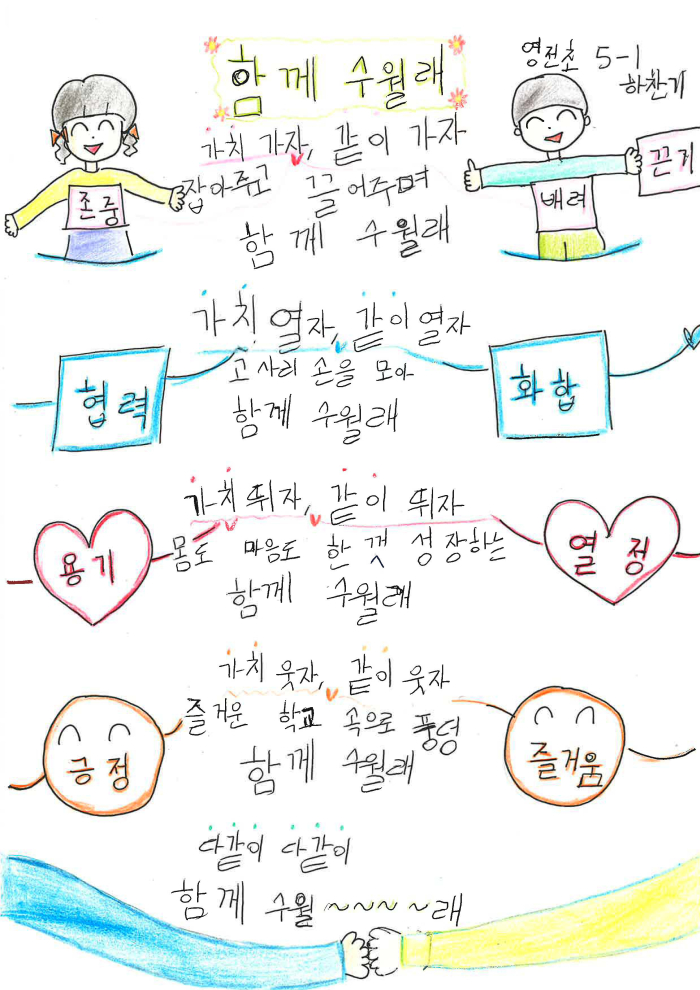 함께 수월래
영전초 5-1
하찬기
가치 가자, 같이 가자
잡아주고 끌어주며
함께 수월래
존중
배려
끈기
가치 열자, 같이 열자
고사리 손을 모아
함께 수월래
협력
화합
가치 뛰자, 같이 뛰자
몸도 마음도 한껏 성장하는
함께 수월래
용기
열정
가치 웃자, 같이 웃자
즐거운 학교 속으로 풍덩
함께 수월래
긍정
즐거움
다같이 다같이
함께 수월~~~~래